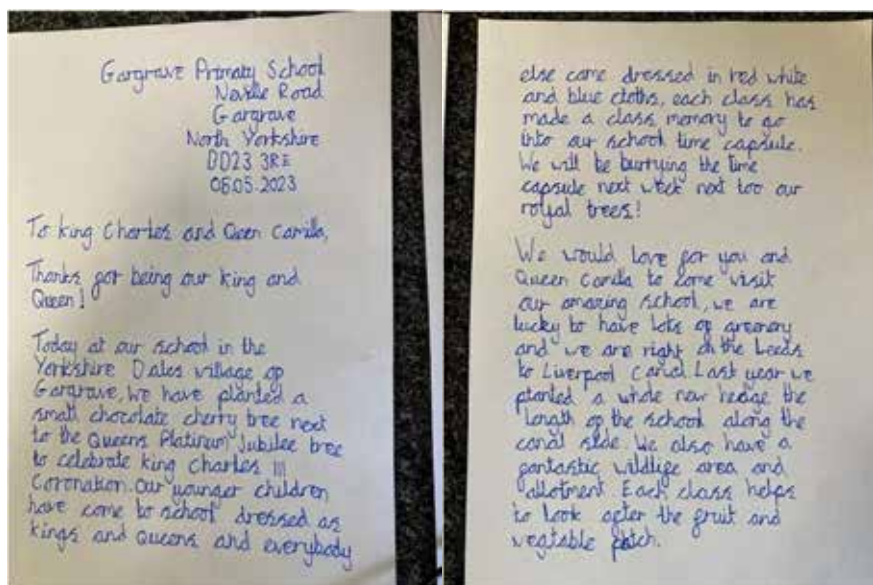 Gargrave Primary School
Neville Road
Gargrave
North Yorkshire
BD23 3RE
06.05.2023
To king Charles and Queen Camilla,
Thanks for being our king and
Queen!
Today at our school in the
Yorkshire Dales village of
Gargrave, we have planted a
small chocolate cherry tree next
to the Queens Platinum Jubilee tree
to celebrate king Charles III
Coronation. Our younger children
have come to school dressed as
kings and Queens and everybody
else came dressed in red white
and blue cloths, each class has
made a class memory to go
into our school time capsule.
We will be burrying the time
capsule next week next too our
royal trees!
We would love for you and
Queen Camilla to come visit
our amazing school, we are
lucky to have lots of greenery
and we are right on the Leeds
to Liverpool Canal. Last year we
planted a whole new hedge the
length of the school along the
canal side. We also have a
fantastic wildlife area and
allotment. Each class helps
to look after the fruit and
vegtable patch.